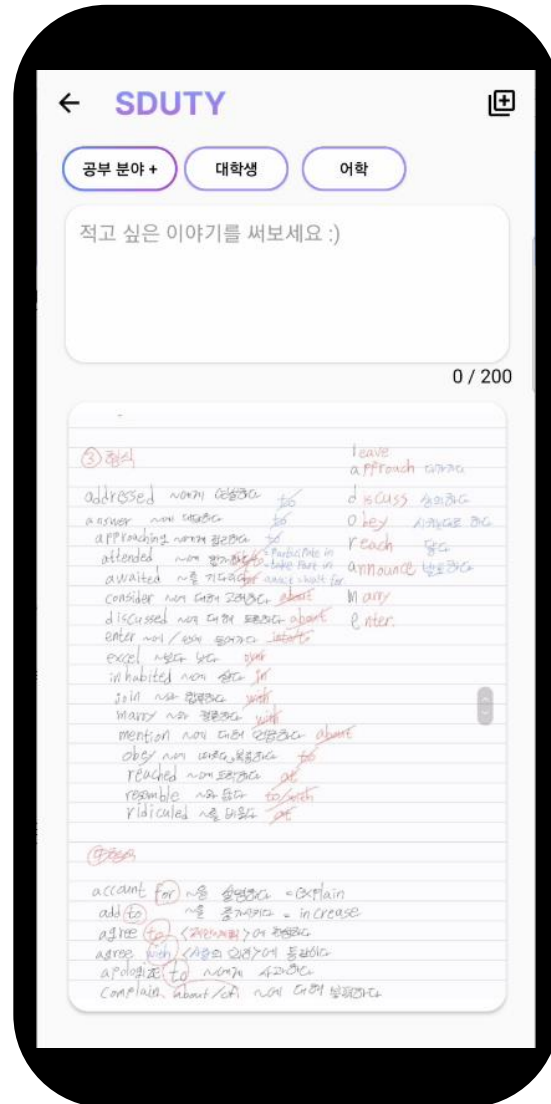 SDUTY
공부 분야 +
대학생
어학
적고 싶은 이야기를 써보세요 :)
0 / 200
③ 형식
addressed ~에게 연설하다 to
answer ~에 대답하다 to
approaching ~에게 접근하다 to
attended ~에 참가하다 = participate in
= take part in
awaited ~를 기다리다 for await = wait for
consider ~에 대해 고려하다 about
discussed ~에 대해 토론하다 about
enter ~에 / 안에 들어가다 into/to
excel ~보다 낫다 over
inhabited ~에 살다 in
join ~와 합류하다 with
marry ~와 결혼하다 with
mention ~에 대해 언급하다 about
obey ~에 따르다, 복종하다 to
reached ~에 도착하다 at
resemble ~와 닮다 to/with
ridiculed ~를 비웃다 at
leave
approach 다가가다
discuss 상의하다
obey 시키는대로 하다
reach 닿다
announce 발표하다
marry
enter.
account for ~을 설명하다 = explain
add to ~를 증가시키다 = increase
agree to 에 찬성하다
agree with <사람의 의견>에 동의하다
apologize to ~에게 사과하다
complain about/of ~에 대해 불평하다